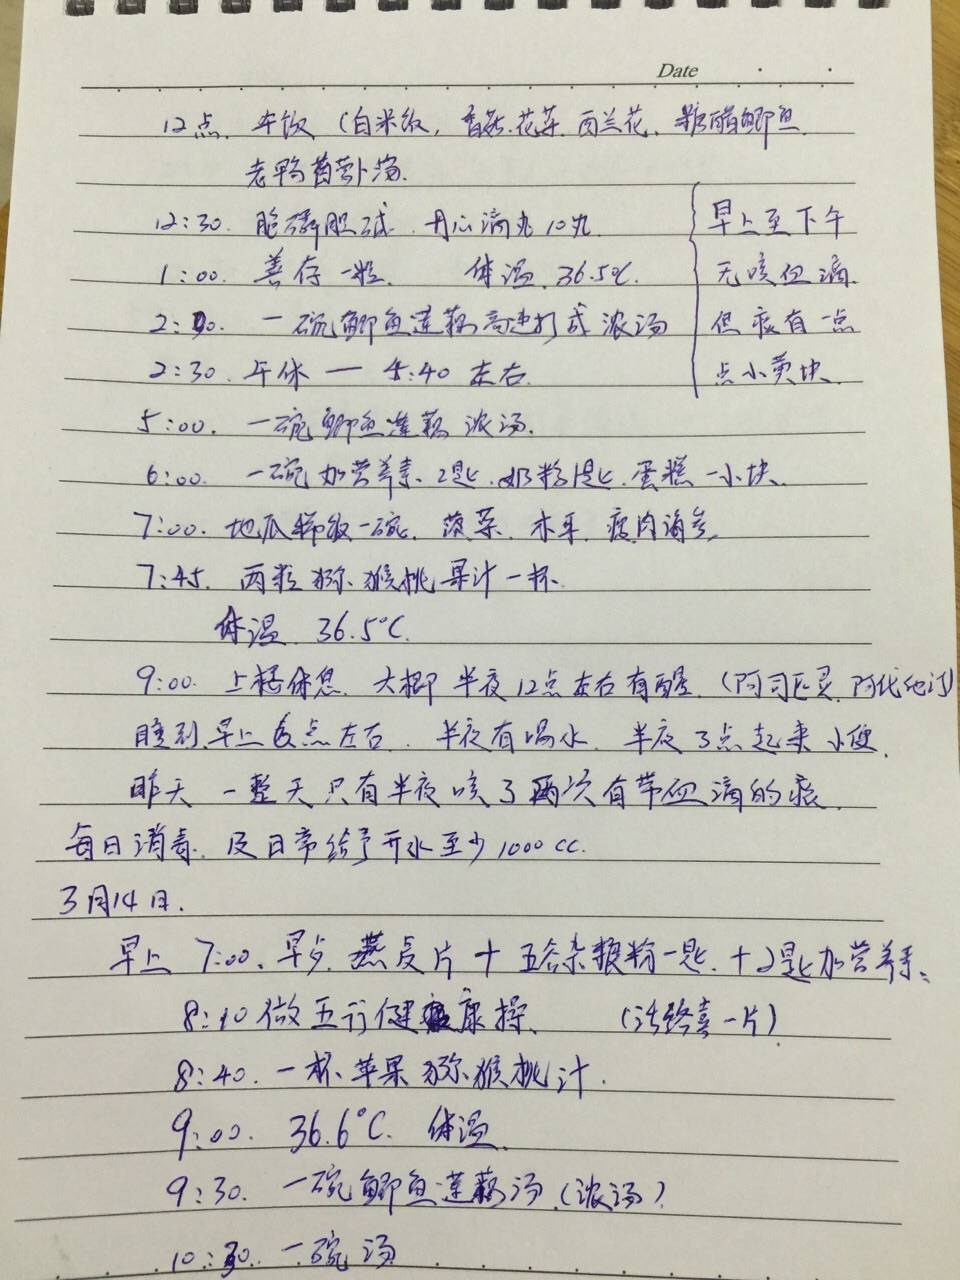 Date
12点. 午饭（白米饭, 香菇. 花菜. 西兰花、糖醋鲫鱼.
老鸭萝卜汤.
12:30. 脂磷胆碱. 丹心滴丸10丸
1:00. 善存一粒 体温. 36.5℃.
2:00. 一碗鲫鱼莲藕高速打成浓汤
2:30. 午休 — 4:40 左右.
早上至下午
无咳血滴.
但痰有一点
点小黄块.
5:00. 一碗鲫鱼莲藕浓汤.
6:00. 一碗加营养素. 2匙. 奶粉1匙. 蛋糕一小块.
7:00. 地瓜稀饭一碗. 菠菜. 木耳. 瘦肉海参.
7:45. 两粒猕猴桃果汁一杯.
体温. 36.5℃.
9:00. 上楼休息. 大概半夜12点左右有醒.（阿司匹灵. 阿托他汀）
睡到早上6点左右. 半夜有喝水. 半夜3点起来小便.
昨天一整天只有半夜咳了两次有带血滴的痰.
每日消毒. 及日常给予开水至少1000cc.
3月14日.
早上 7:00、早点 燕麦片 + 五谷杂粮粉一匙. + 2匙加营养素、
8:10 做五行健康操、 （活络喜一片）
8:40. 一杯苹果猕猴桃汁.
9:00. 36.6℃. 体温.
9:30. 一碗鲫鱼莲藕汤.（浓汤）
10:30. 一碗汤